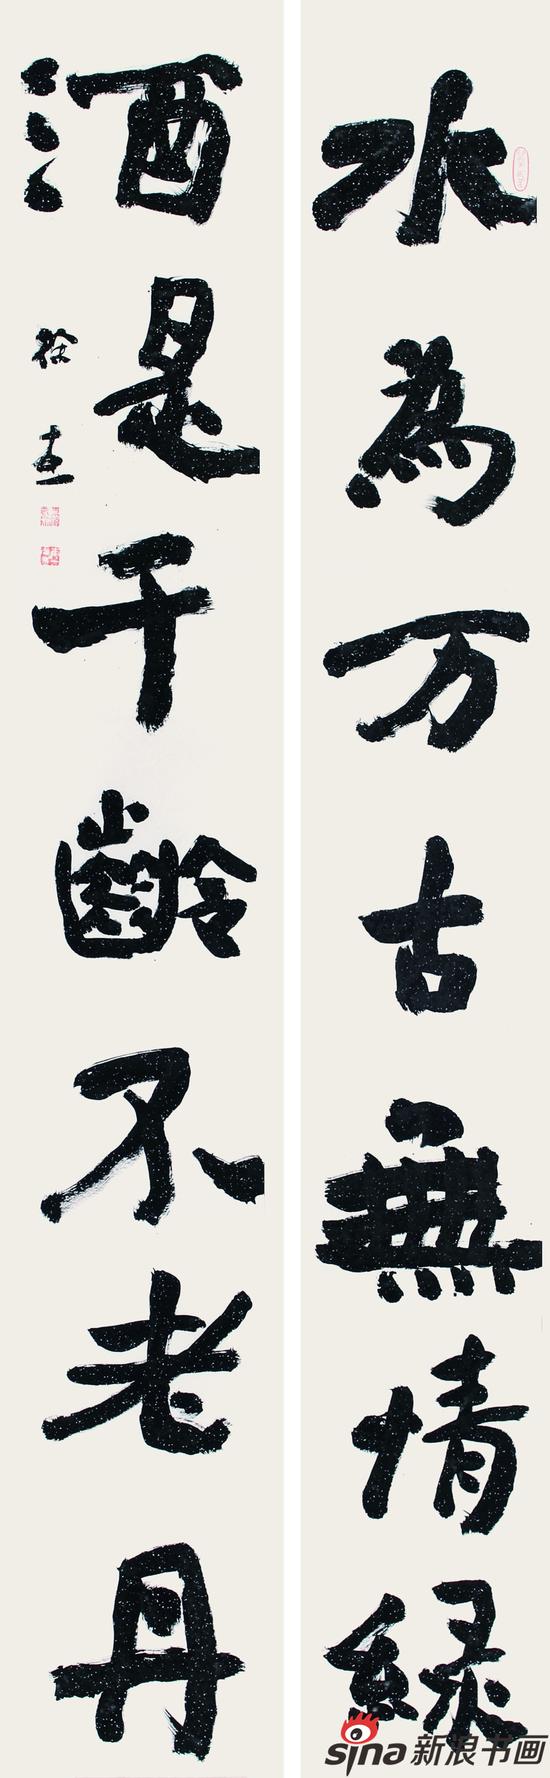 水為万古無情緑
酒是千齡不老丹
徐
sina新浪书画